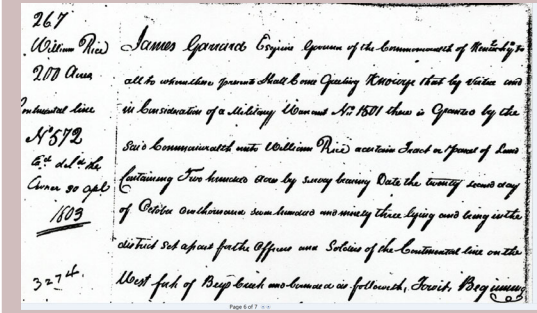 267
William Rice
200 Acres
Continental line
No 572
Ex'd del'd the
Owner 30 Apl
1803
3274.
James Garrard Esquire Governor of the Commonwealth of Kentucky To
all to whom these presents Shall Come Greeting Know ye that by virtue and
in Consideration of a Military Warrant No 1501 there is Granted by the
said Commonwealth unto William Rice a certain Tract or Parcel of Land
Containing Two hundred acres by survey bearing Date the twenty second day
of October one thousand seven hundred and ninety three lying and being in the
district Set apart for the Officers and Soldiers of the Continental line on the
West fork of Creek and bounded as followeth, Towit, Beginning
Page 6 of 7